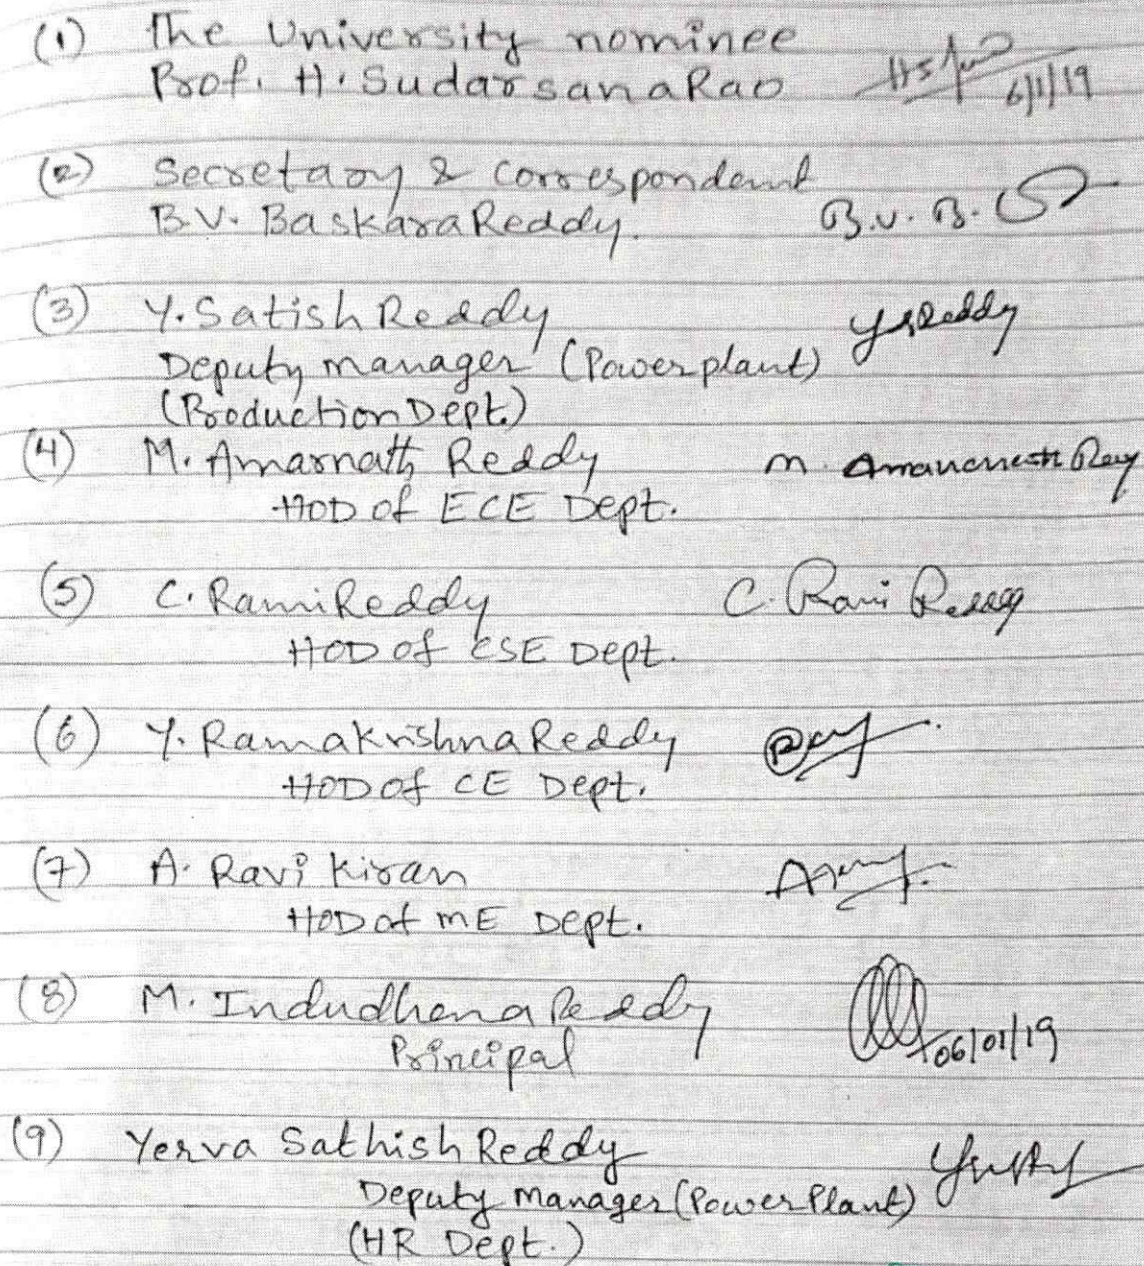 (1) The University nominee
Prof. H. SudarsanaRao 6/1/19
(2) Secretary & Correspondent
B.V. BaskaraReddy. B.V.B.
(3) Y. Satish Reddy YSReddy
Deputy manager (Powerplant)
(Production Dept.)
(4) M. Amarnath Reddy M. Amarnath Reddy
HOD of ECE Dept.
(5) C. RamiReddy C. Rami Reddy
HOD of CSE Dept.
(6) Y. RamakrishnaReddy
HOD of CE Dept.
(7) A. Ravi Kiran
HOD of ME Dept.
(8) M. Indudhara Reddy 06/01/19
Principal
(9) Yerva Sathish Reddy
Deputy Manager (Power Plant)
(HR Dept.)